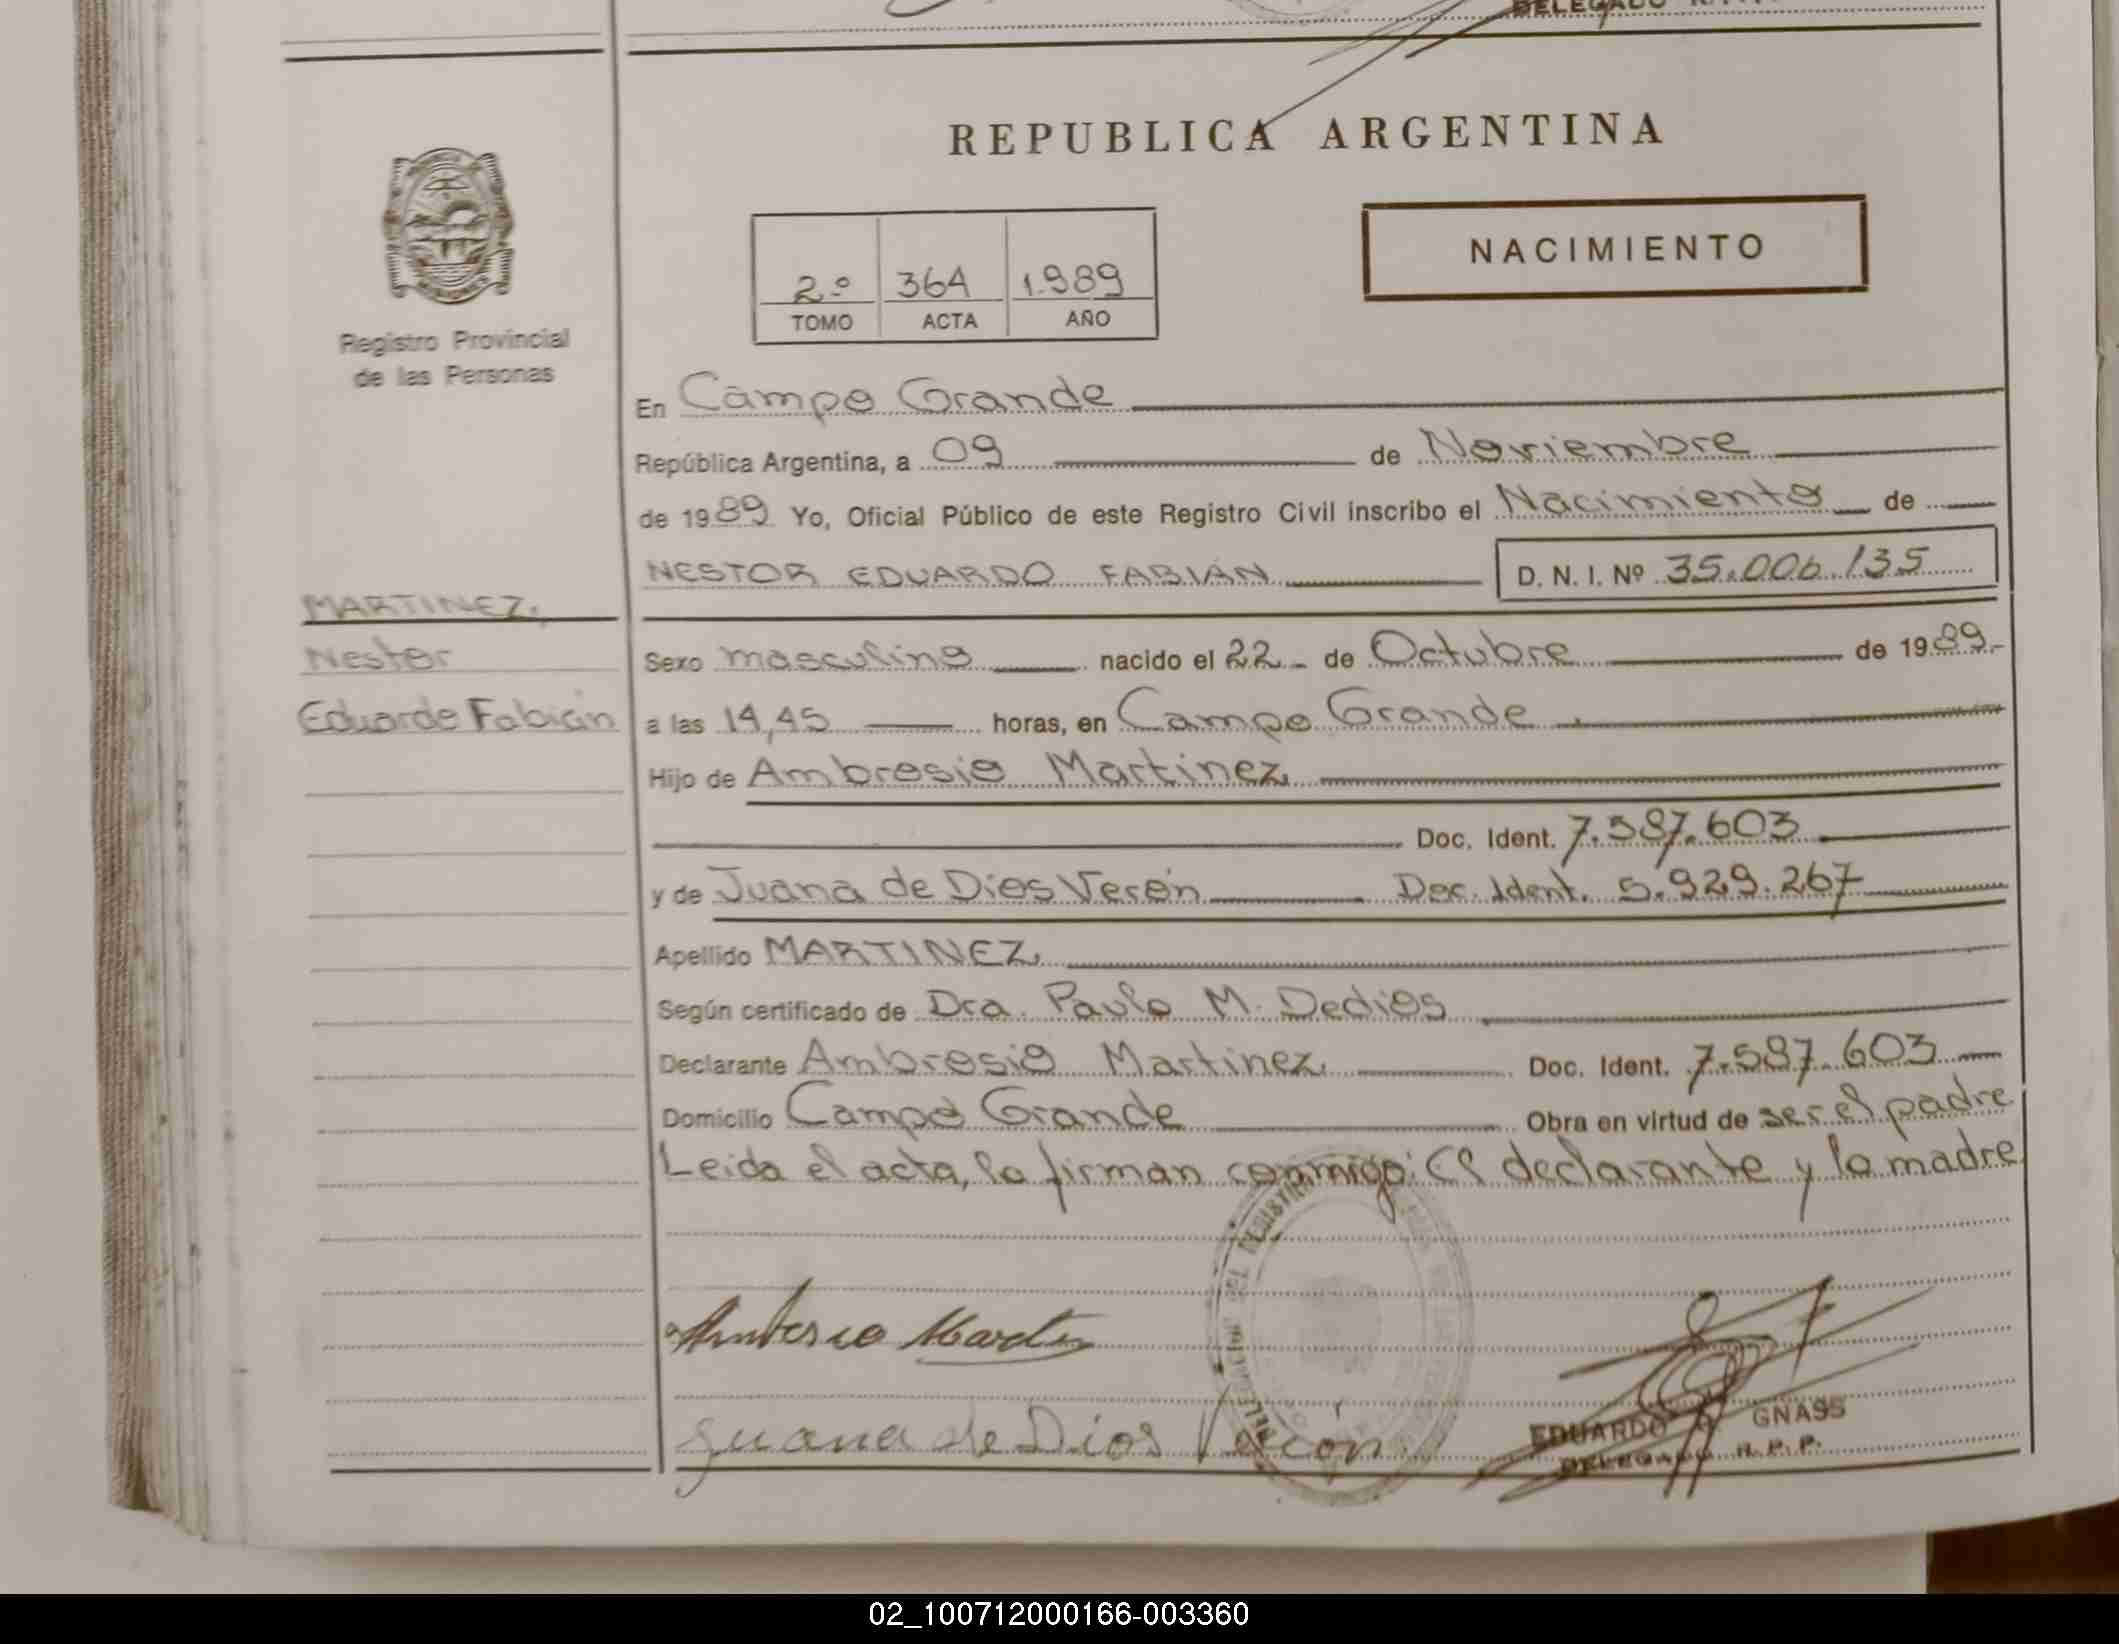 DELEGADO
REPUBLICA ARGENTINA
NACIMIENTO
2º 364 1.989
TOMO ACTA AÑO
Registro Provincial
de las Personas
En Campo Grande
República Argentina, a 09 de Noviembre
de 1989 Yo, Oficial Público de este Registro Civil inscribo el Nacimiento de
NESTOR EDUARDO FABIÁN D. N. I. Nº 35.006.135
MARTINEZ.
Nestor
Eduardo Fabián
Sexo masculino nacido el 22 de Octubre de 1989.-
a las 14,45 horas, en Campo Grande
Hijo de Ambrosio Martinez
Doc. Ident. 7.587.603
y de Juana de Dios Verón Doc. Ident. 5.929.267
Apellido MARTINEZ
Según certificado de Dra. Paulo M. Dedios
Declarante Ambrosio Martinez Doc. Ident. 7.587.603
Domicilio Campo Grande Obra en virtud de ser el padre
Leida el acta, la firman conmigo: El declarante y la madre
Ambrosio Martin
Juana de Dios Verón
EDUARDO GNASS
DELEGADO R. P. P.
02_100712000166-003360